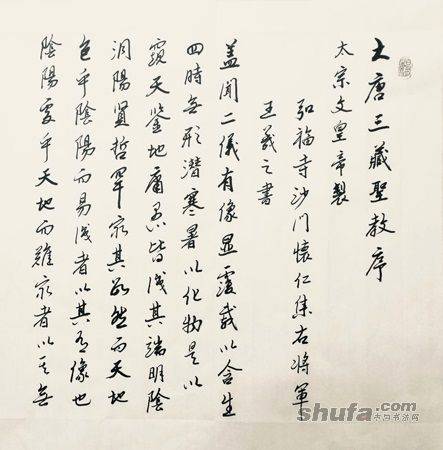 大唐三藏聖教序
太宗文皇帝製
弘福寺沙門懷仁集右將軍
王羲之書
盖聞二儀有像顯覆載以含生
四時無形潛寒暑以化物是以
窺天鉴地庸愚皆識其端明陰
洞陽賢哲罕窮其數然而天地
色乎陰陽而易識者以其有像也
陰陽處乎天地而難窮者以其無
shufa.com